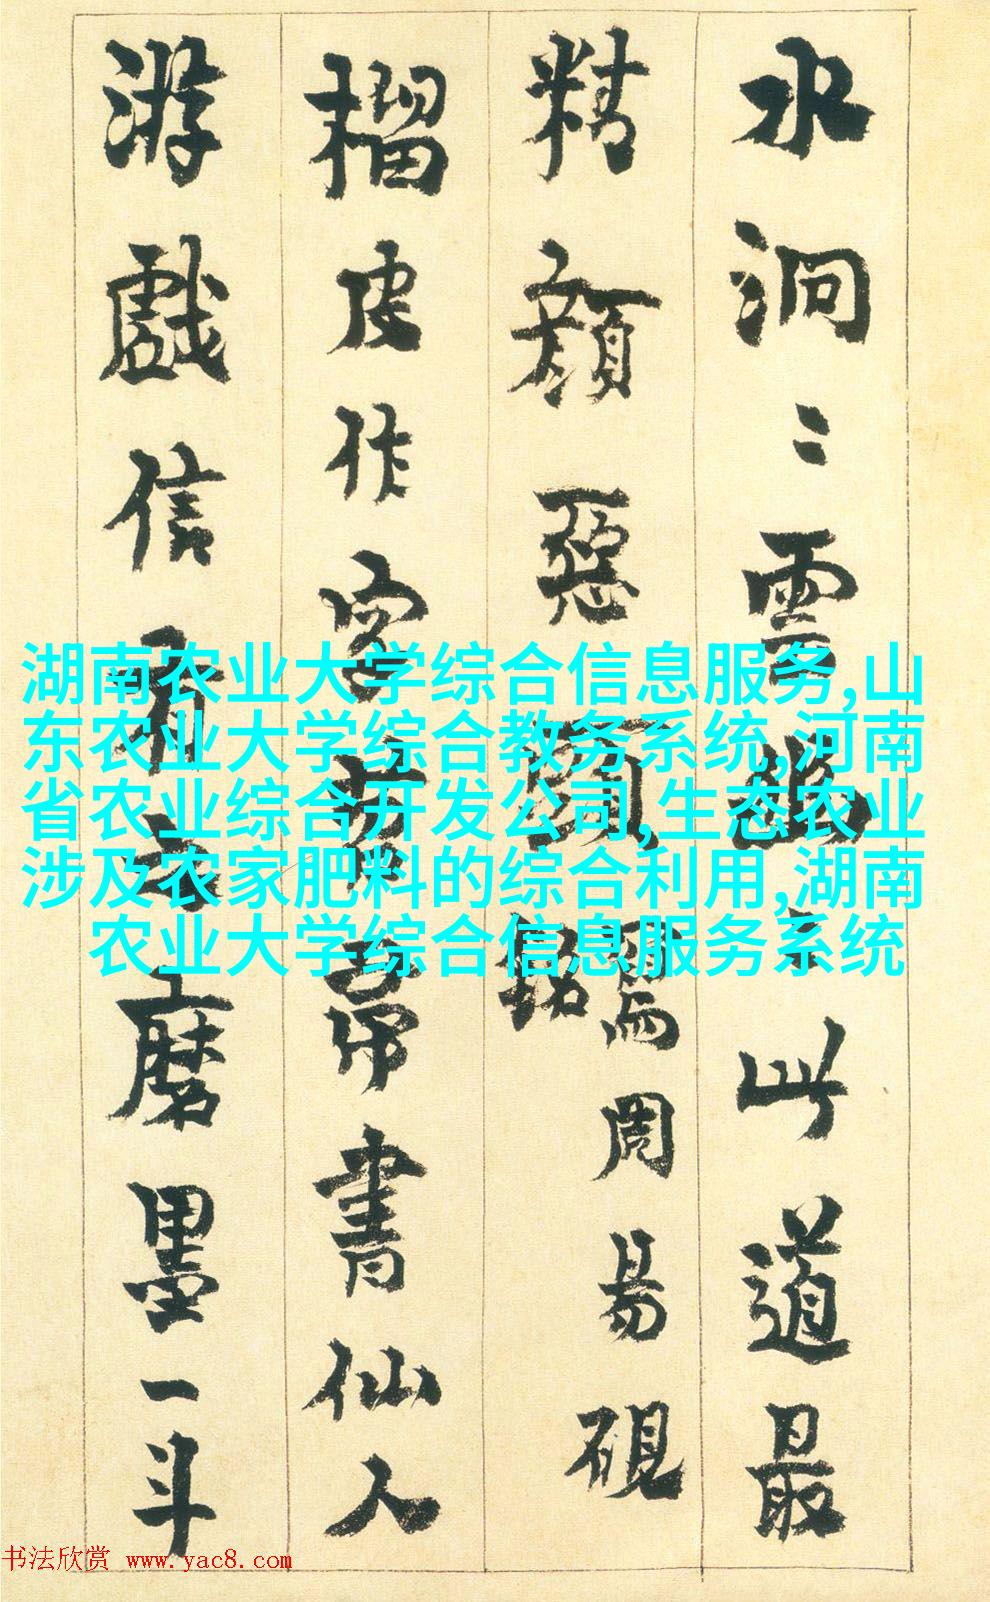 水洞〻雲幽〻此道最
精顏惡
罵周易硯
銘
榴皮作字帚書仙人
游戲信有之磨墨一斗
湖南农业大学综合信息服务,山
东农业大学综合教务系统,河南
省农业综合开发公司,生态农业
涉及农家肥料的综合利用,湖南
农业大学综合信息服务系统
书法欣赏 www.yac8.com